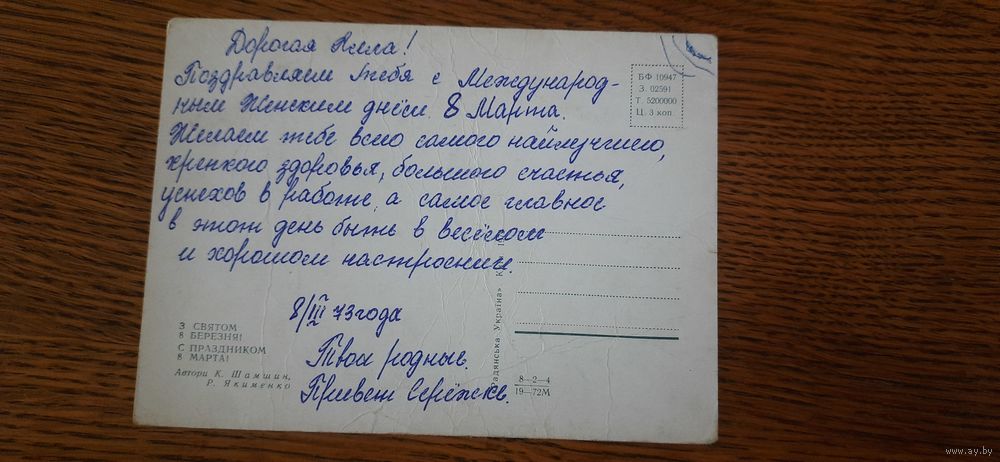 Дорогая Нила!
Поздравляем тебя с Международ-
ным Женским днём 8 Марта.
Желаем тебе всего самого найлучшего,
крепкого здоровья, большого счастья,
успехов в работе, а самое главное
в этот день быть в весёлом
и хорошем настроении.
8/III 73 года
Твои родные.
Привет Серёжке.
БФ 10947
З. 02591
Т. 5200000
Ц. 3 коп.
З СВЯТОМ
8 БЕРЕЗНЯ!
С ПРАЗДНИКОМ
8 МАРТА!
Автори К. Шамшин,
Р. Якименко
Радянська Україна»
8—2—4
19—72М
www.ay.by